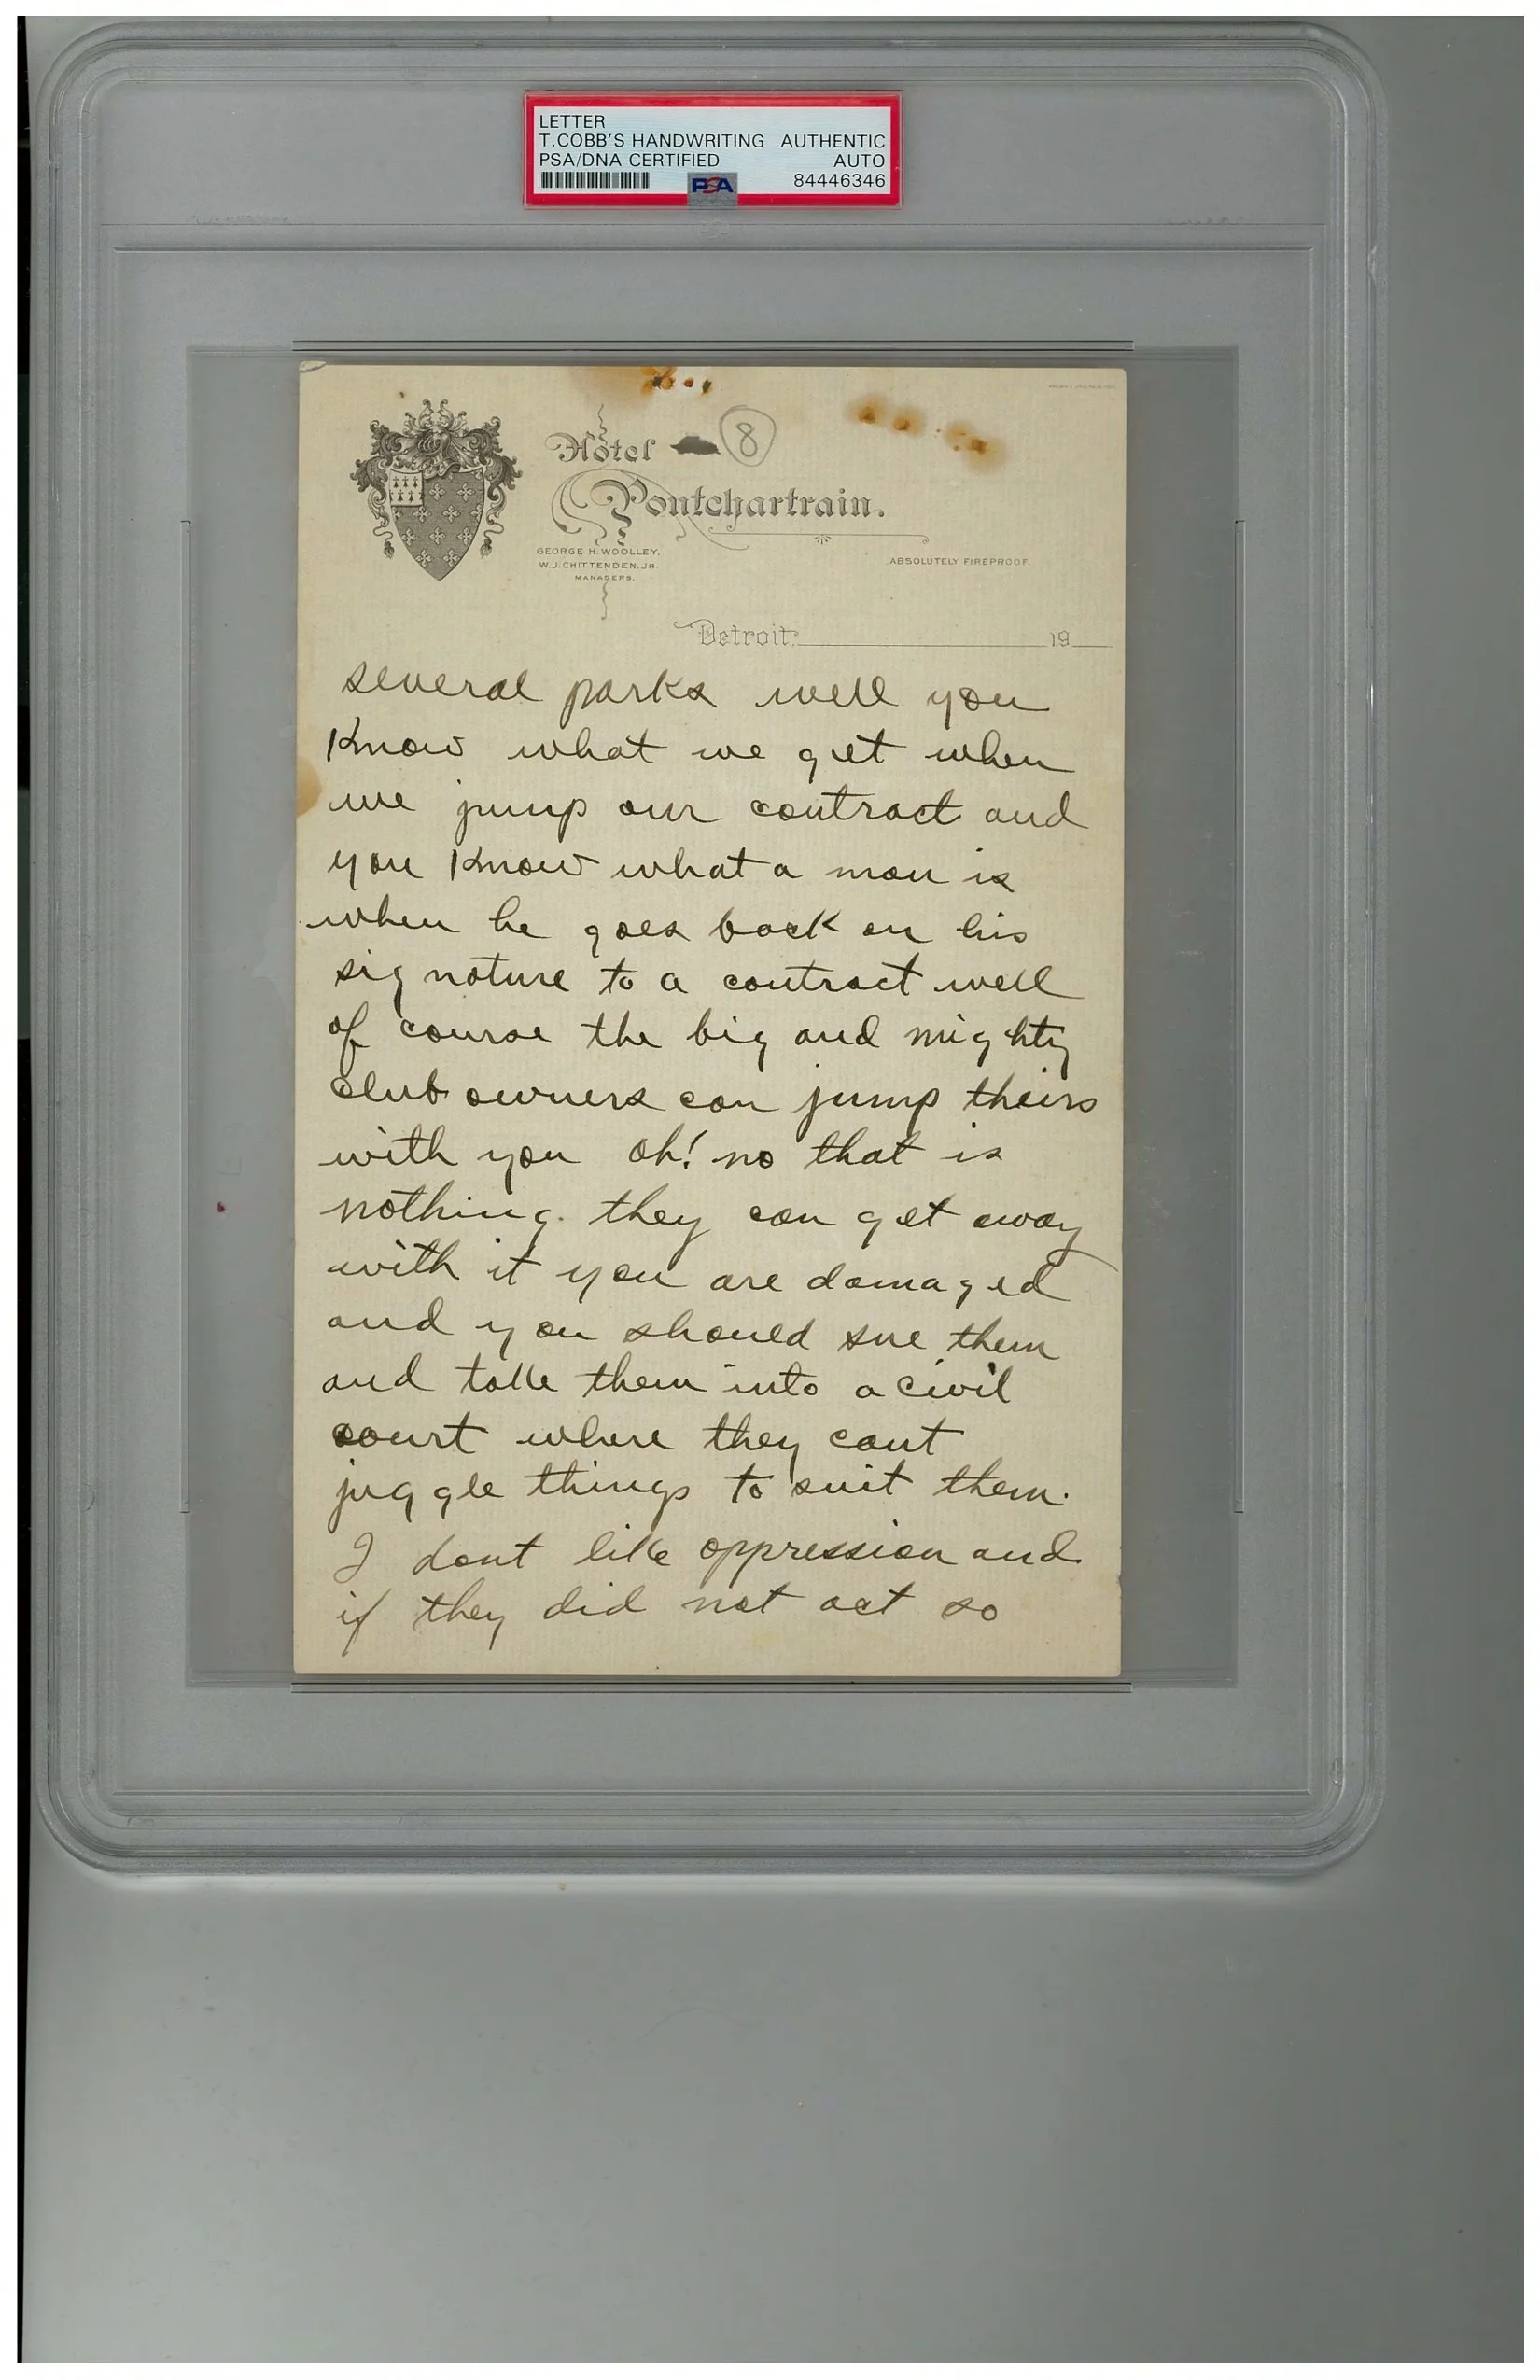 LETTER
T.COBB'S HANDWRITING AUTHENTIC
PSA/DNA CERTIFIED AUTO
PSA 84446346
Hotel 8
Pontchartrain.
GEORGE H. WOOLLEY,
W.J. CHITTENDEN, JR.
MANAGERS.
ABSOLUTELY FIREPROOF
Detroit, 19
several parks well you
know what we get when
we jump our contract and
you know what a man is
when he goes back on his
signature to a contract well
of course the big and mighty
club owners can jump theirs
with you oh! no that is
nothing. they can get away
with it you are damaged
and you should sue them
and take them into a civil
court where they cant
juggle things to suit them.
I dont like oppression and
if they did not act so